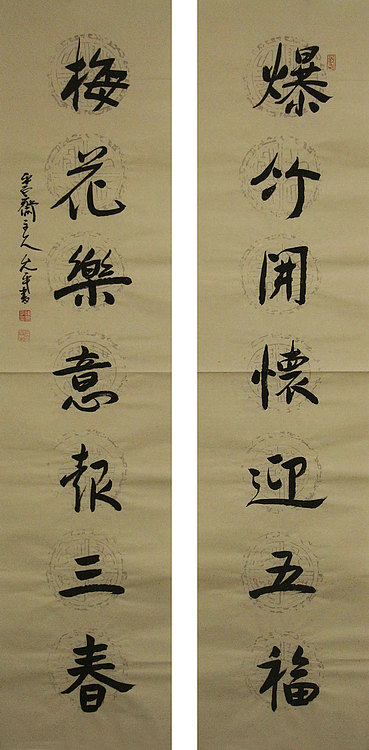 爆竹開懷迎五福
梅花樂意報三春
齋主人
書